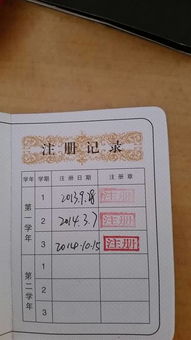 注册记录
学年 学期 注册日期 注册章
第一学年
1 2013.9. 注册
2 2014.3.7 注册
3 2014.10.15 注册
第二学年
1
2
3